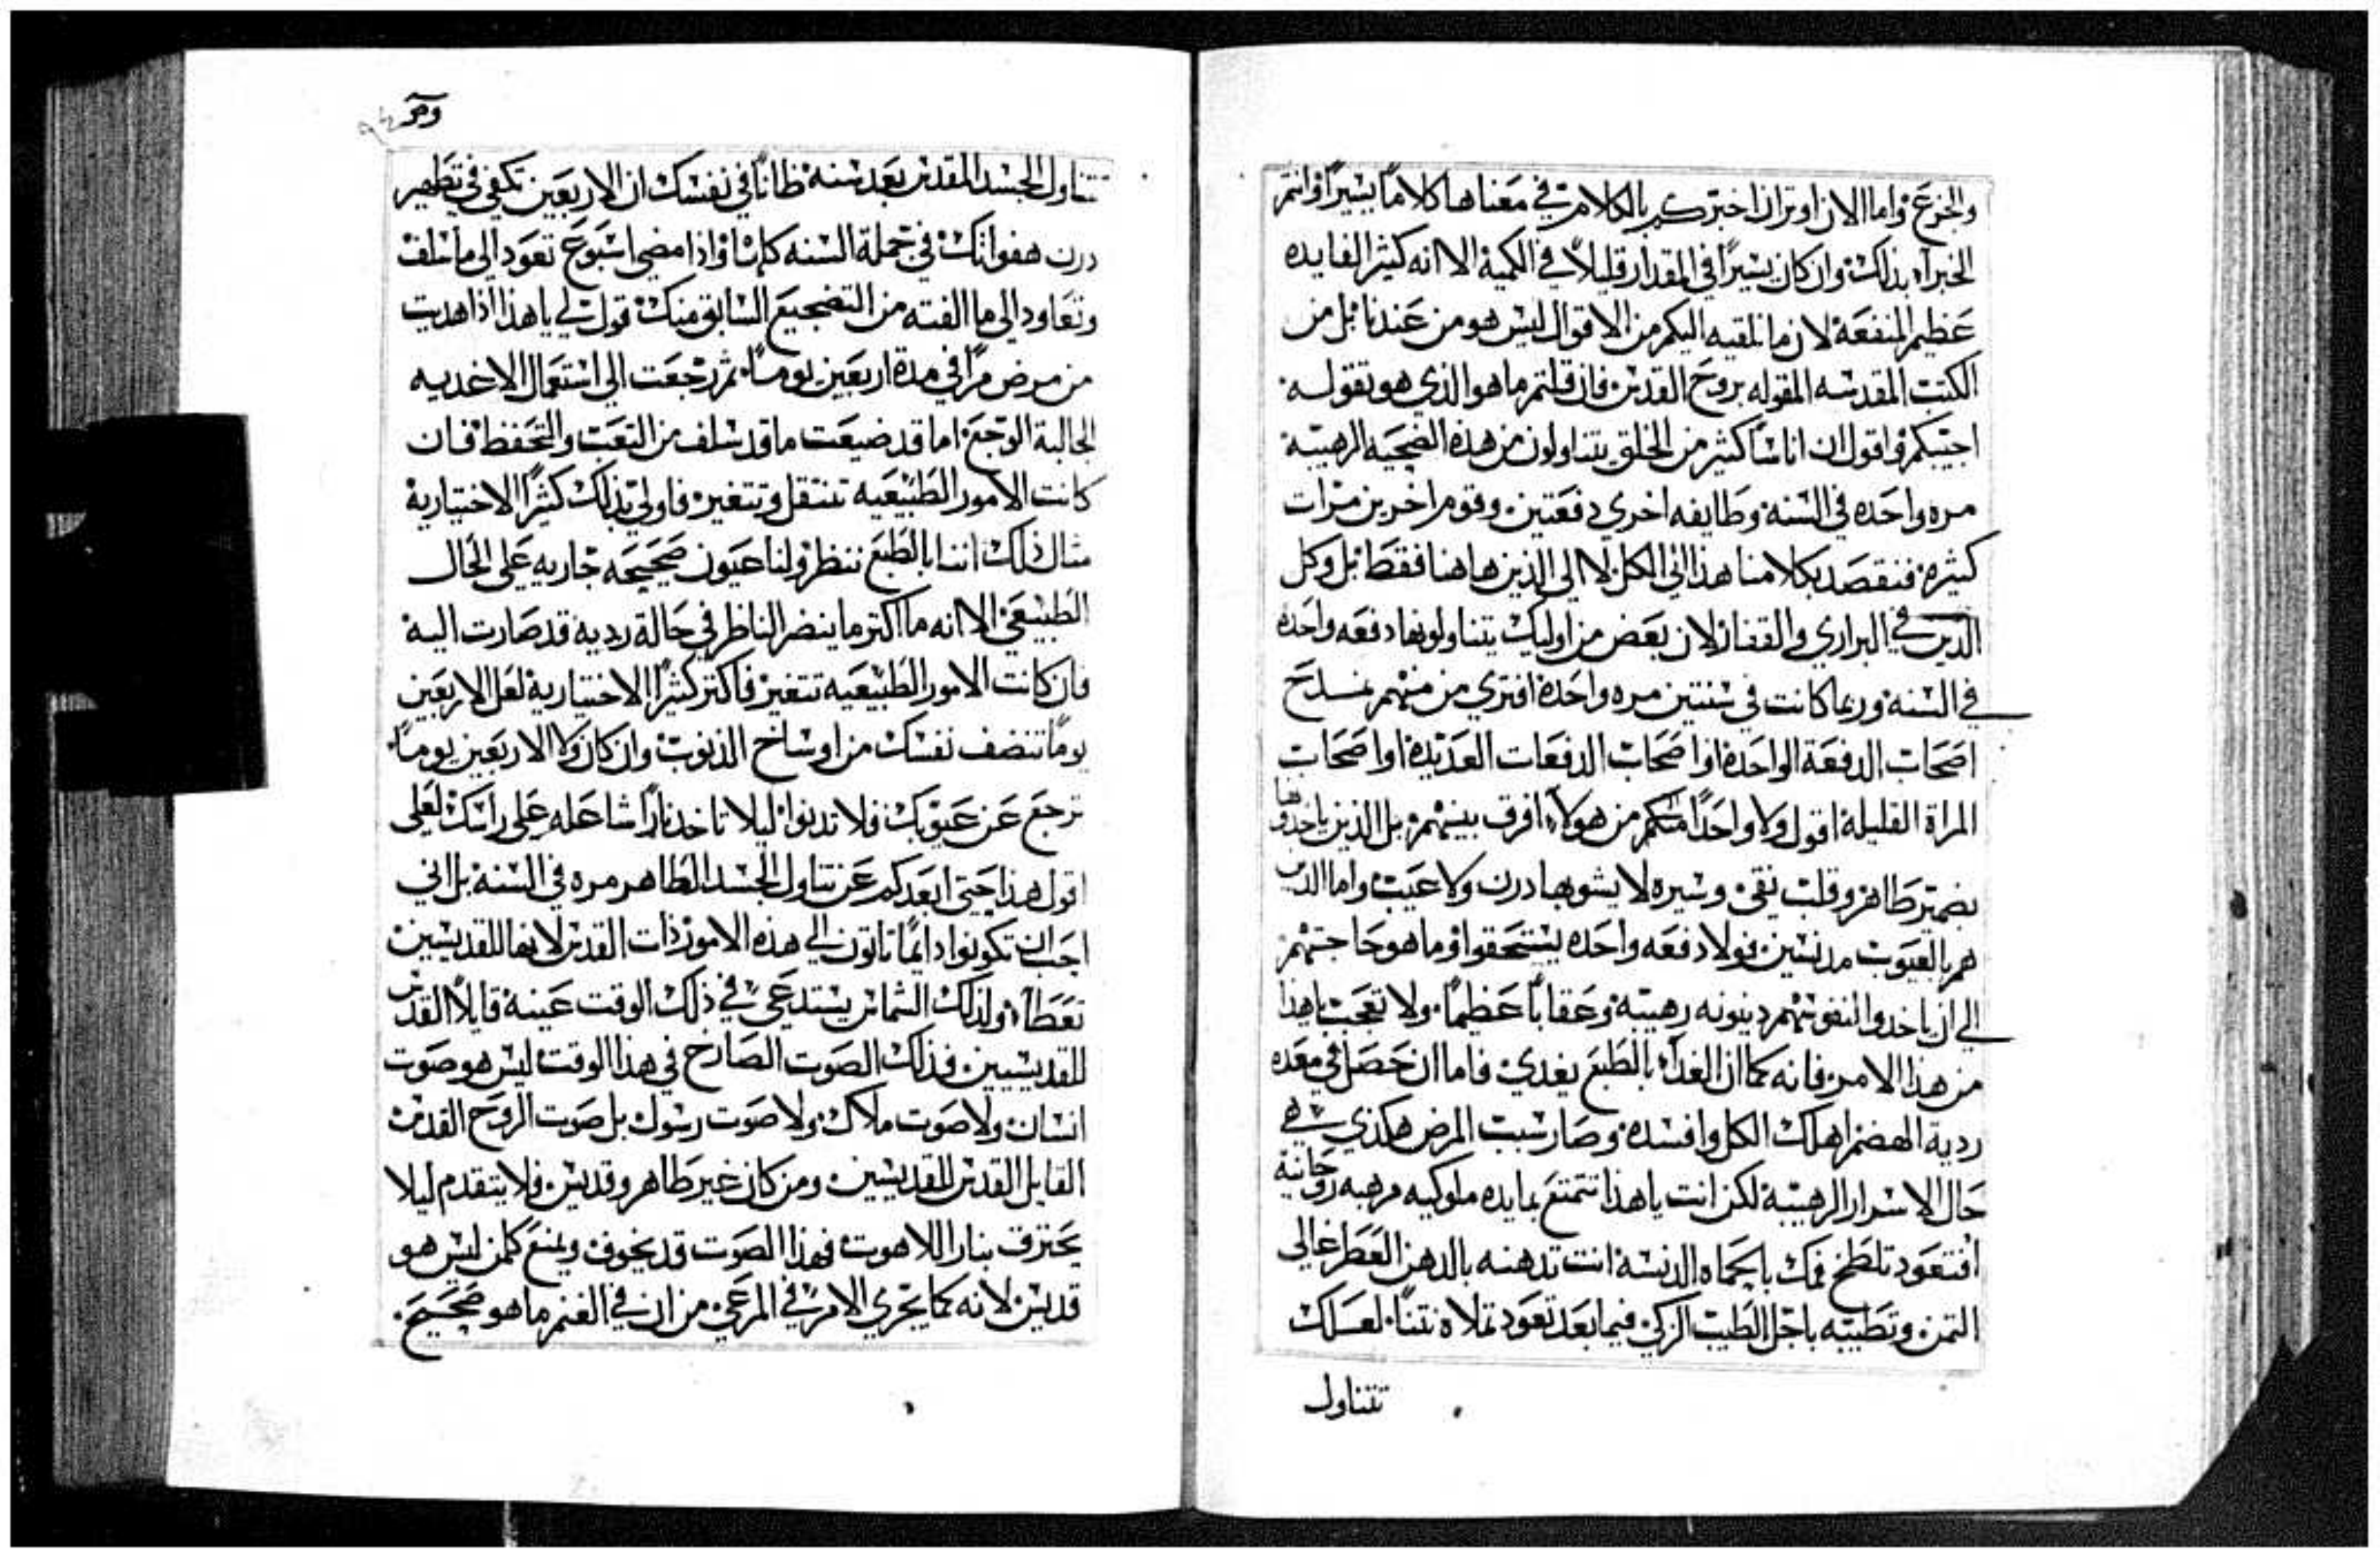 والجزع واما الان اوتر ان اخبركم بالكلام في معناها كلاما يسيرا وانتم
الخبراء بذلك وان كان يسيرًا في المقدار قليلاً في الكمية الا انه كثير الفايده
عظيم المنفعة لان ما نلقيه اليكم من الاقوال ليس هو من عندنا بل من
الكتب المقدسه المقوله بروح القدس فان قلتم ما هو الذي هو تقوله
اجيبكم واقول ان اناسًا كثير من الخلق يتناولون من هذه الضحيه الرهيبة
مره واحده في السنة وطايفه اخري دفعتين وقوم اخرين مرات
كثيره فنقصد بكلامنا هذا الي الكل لا الي الذين هاهنا فقط بل وكل
الذين في البراري والقفار لان بعض من اوليك يتناولونها دفعه واحده
في السنة وربما كانت في سنتين مره واحدة افتري من منهم نمدح
اصحاب الدفعة الواحدة او اصحاب الدفعات العديدة او اصحاب
المراة القليلة اقول ولا واحدًا منكم من هولاء افرق بينهم بل الذين ياخدوها
بضمير طاهر وقلب نقي وسيره لا يشوبها درن ولا عيب واما الذين
هم بالعيوب مدنسين فولا دفعه واحده يستحقوا وما هو حاجتهم
الي ان ياخدوا لنفوسهم دينونه رهيبة وعقابًا عظيمًا ولا تعجب يا هذا
من هذا الامر فانه كما ان الغداء بالطبع يغدي فاما ان حصل في معده
ردية الهضم اهلك الكل وافسده وصار سبب المرض هكذي هي
حال الاسرار الرهيبة لكن انت يا هذا تتمتع بمايده ملوكيه مرهبه روحانية
افتعود تلطخ فمك بالحماه الدنسة انت تدهنه بالدهن العطر غالي
التمن وتطيبه باجل الطيب الزكي فيما بعد تعود تملاه نتنًا لعلك
تتناول
تتناول الجسد المقدس بعد سنة ظانًا في نفسك ان الاربعين تكفي في تطهير
درن هفواتك في جملة السنه كلها واذا مضي اسبوع تعود الي ما سلف
وتعاود الي ما الفته من التضجيع السابق منك قول لي يا هذا اذا هديت
من مرض مرًا في مدة اربعين يومًا ثم رجعت الي استعمال الاغديه
الجالبة الوجع اما قد ضيعت ما قد سلف من التعب والتحفظ فان
كانت الامور الطبيعيه تنتقل وتتغير فاولي بذلك كثيرًا الاختيارية
مثال ذلك اننا بالطبع ننظر ولنا عيون صحيحه جاريه علي الحال
الطبيعي الا انه ما اكتر ما ينضر الناظر في حالة رديه قد صارت اليه
فان كانت الامور الطبيعيه تتغير فاكتر كثيرًا الاختيارية لعل الاربعين
يومًا تنضف نفسك من اوساخ الذنوب وان كان ولا الاربعين يومًا
ترجع عن عيوبك فلا تدنوا ليلا تاخد نارًا شاعله علي راسك لعلي
اقول هذا حتي ابعدكم عن تناول الجسد الطاهر مره في السنة بل اني
احب ان تكونوا دايمًا تاتون الي هذه الامور ذات القدس لانها للقديسين
تعطاء ولذلك الشماس يستدعي في ذلك الوقت عينه قايلاً القدس
للقديسيين فذلك الصوت الصارخ في هذا الوقت ليس هو صوت
انسان ولا صوت ملاك ولا صوت رسول بل صوت الروح القدس
القايل القدس للقديسين ومن كان غير طاهر وقديس فلا يتقدم ليلا
يحترق بنار اللاهوت فهذا الصوت قد يخوف ويمنع كلمن ليس هو
قديس لانه كما يجري الامر في المرعي من ان في الغنم ما هو صحيح